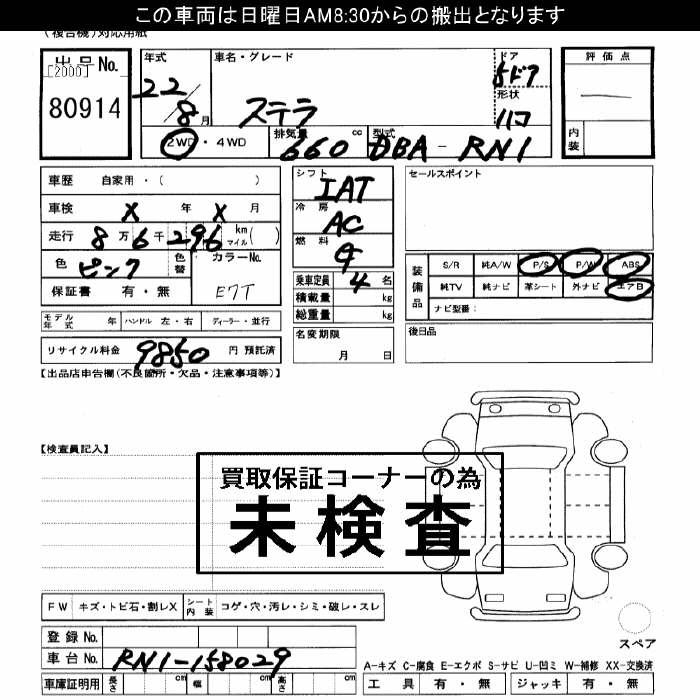 この車両は日曜日AM8:30からの搬出となります
(複合機)対応用紙
出品No.
[2000]
80914
年式
22/8月
車名・グレード
ステラ
ドア
5ドア
形状
ハコ
評価点
内装
2WD・4WD
排気量 660 cc
型式 DBA-RN1
車歴 自家用・( )
車検 X 年 X 月
走行 8万6千296 km マイル( )
色 ピンク 色替
カラーNo. E7T
保証書 有・無
シフト IAT
冷房 AC
燃料 G
乗車定員 4 名
積載量 kg
総重量 kg
セールスポイント
装備品
S/R 純A/W P/S P/W ABS
純TV 純ナビ 革シート 外ナビ エアB
ナビ型番:
モデル年式 年 ハンドル 左・右 ディーラー・並行
名変期限 月 日
後日品
リサイクル料金 9850 円 預託済
【出品店申告欄(不良箇所・欠品・注意事項等)】
【検査員記入】
買取保証コーナーの為
未検査
FW キズ・トビ石・割レX シート内装 コゲ・穴・汚レ・シミ・破レ・スレ
登録No.
車台No. RN1-158029
車庫証明用 長さ cm 幅 cm 高さ cm
スペア
A-キズ C-腐食 E-エクボ S-サビ U-凹ミ W-補修 XX-交換済
工具 有・無 ジャッキ 有・無